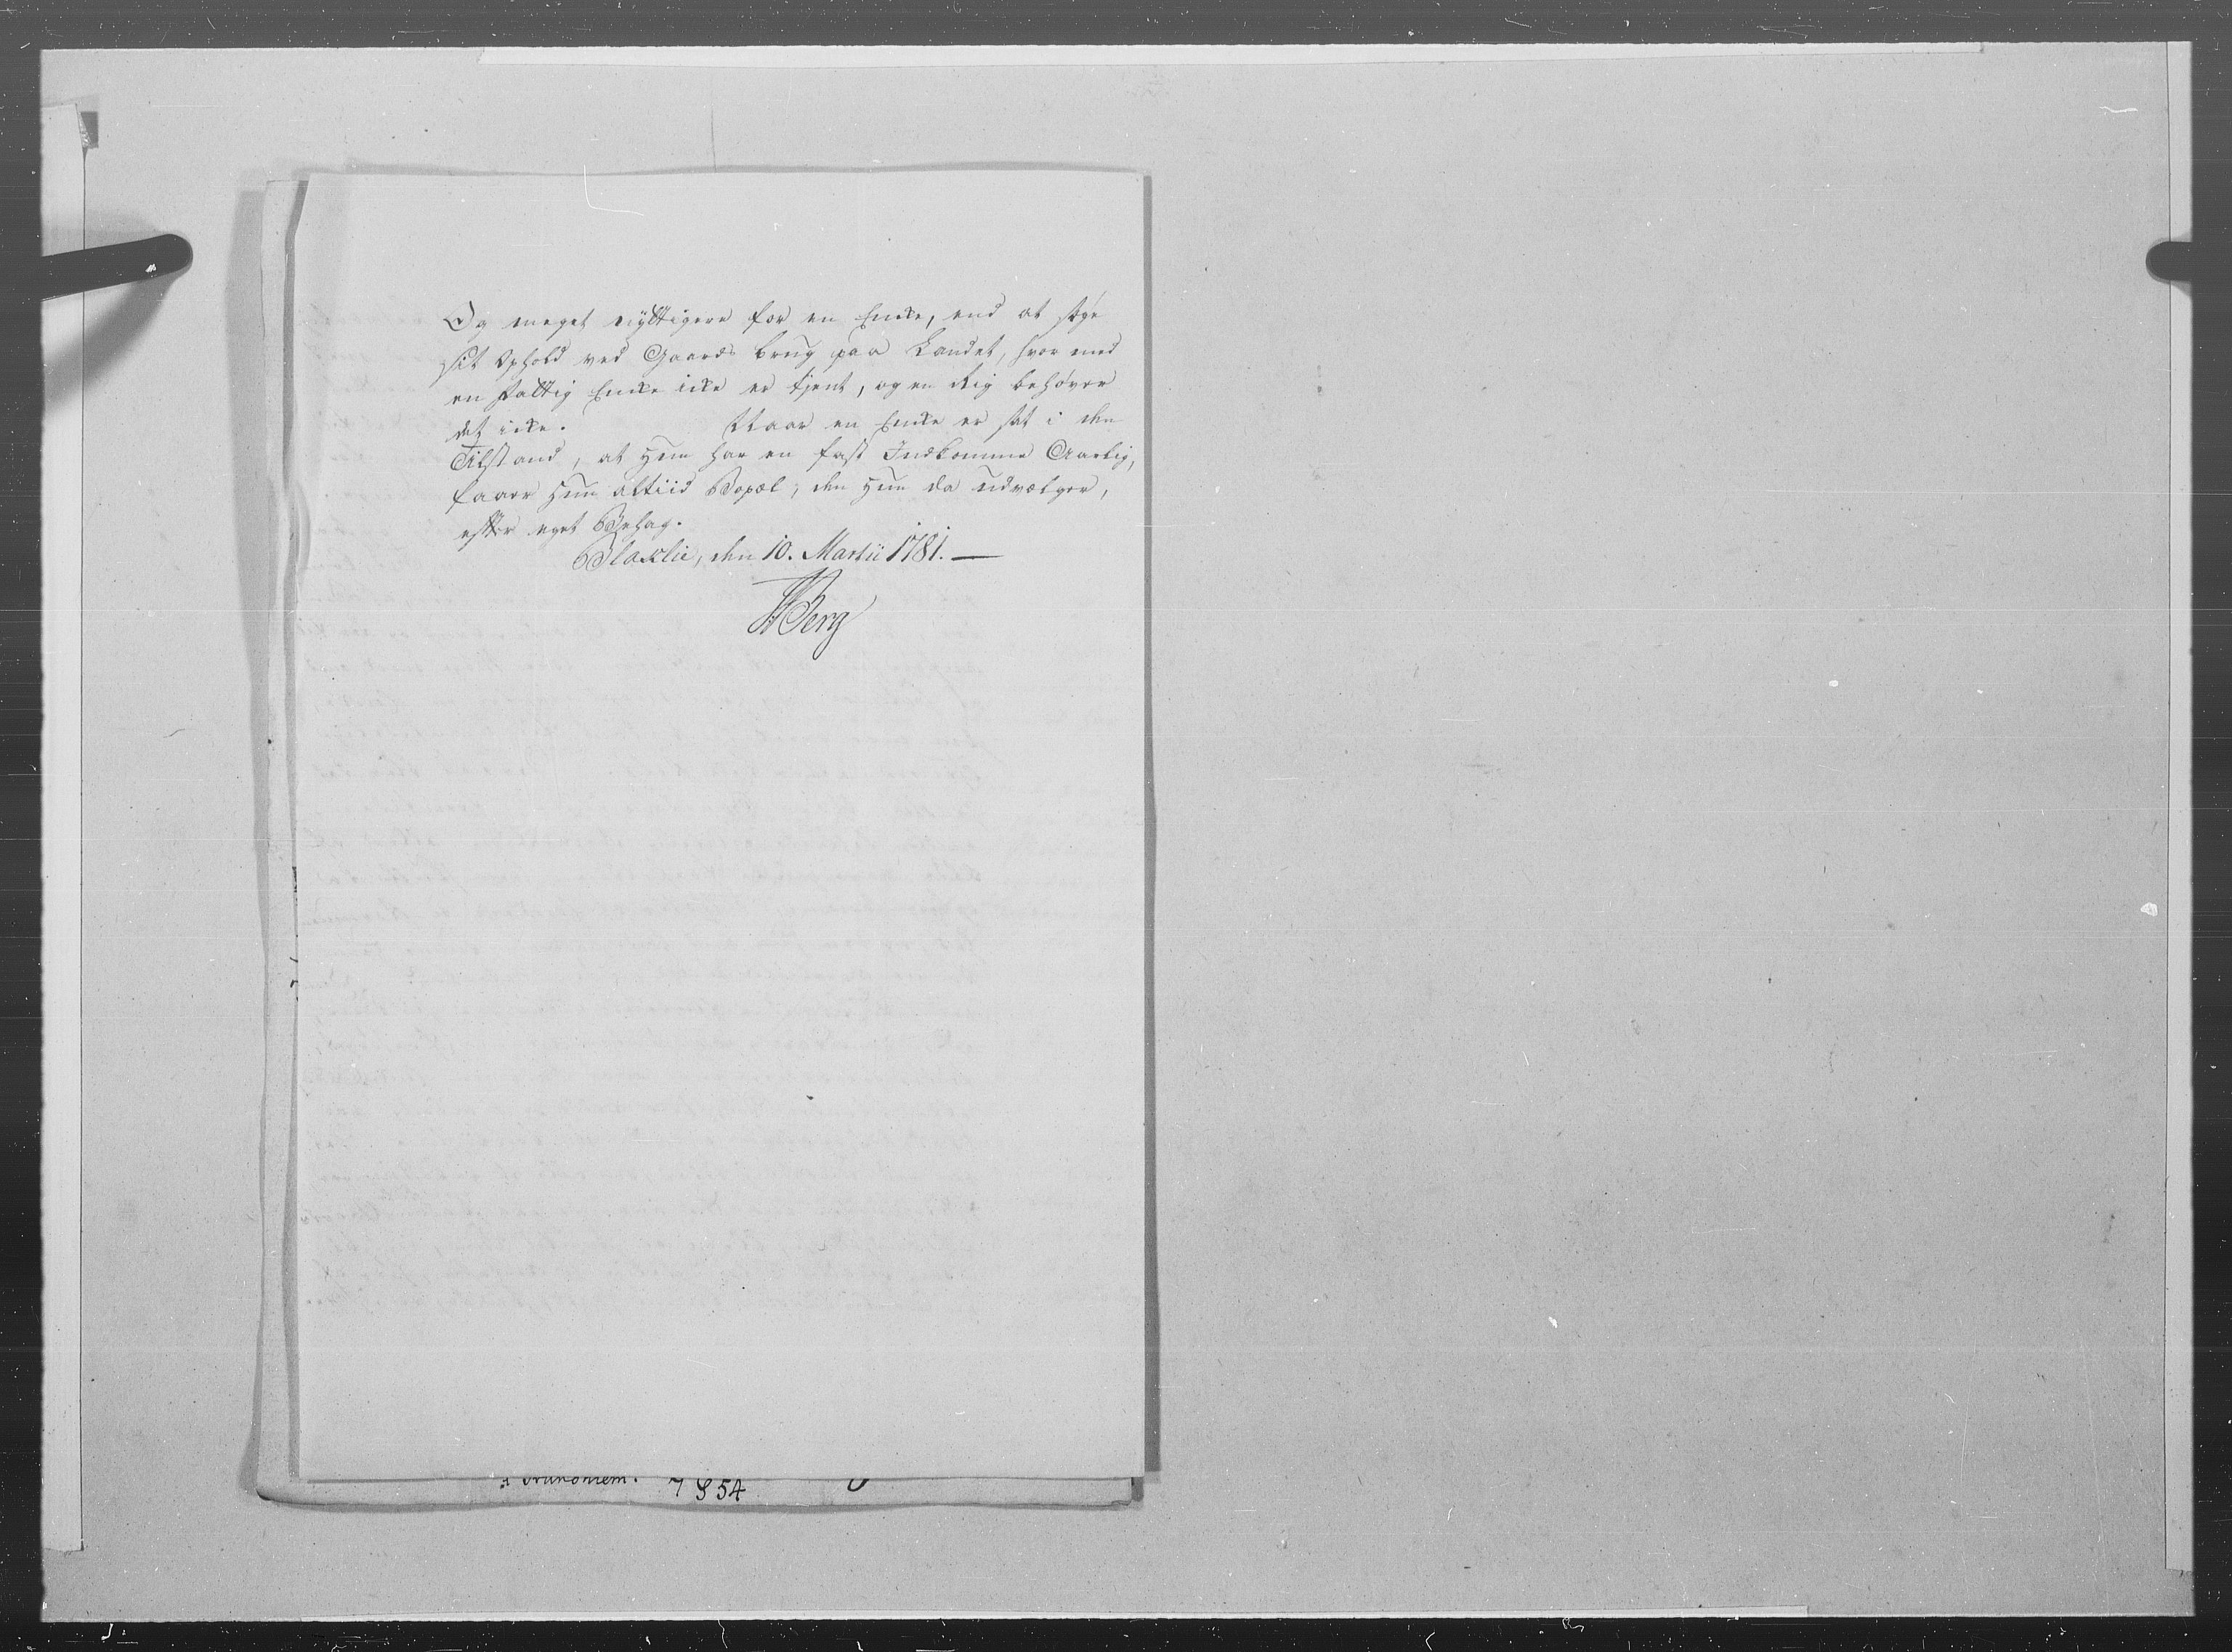 Og meget nyttigere for en Encke, end at søge
sit Ophold ved Gaards brug paa Landet, hvor med
en Fattig Encke icke er tjent, og en Rig behøver
det icke. Naar en Encke er sat i den
Tilstand, at Hun har en fast Indkomme Aarlig,
faaer Hun altiid Bopæl, den Hun da udvælger,
efter eget Behag.
Blaklie, den 10. Martii 1781. —
HBerg
7 S 54